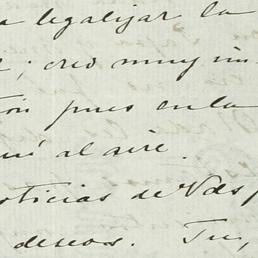 a legalizar la
; creo muy im
ton pues en la
ni al aire.
oticias de Vds p
deseos. Tu,